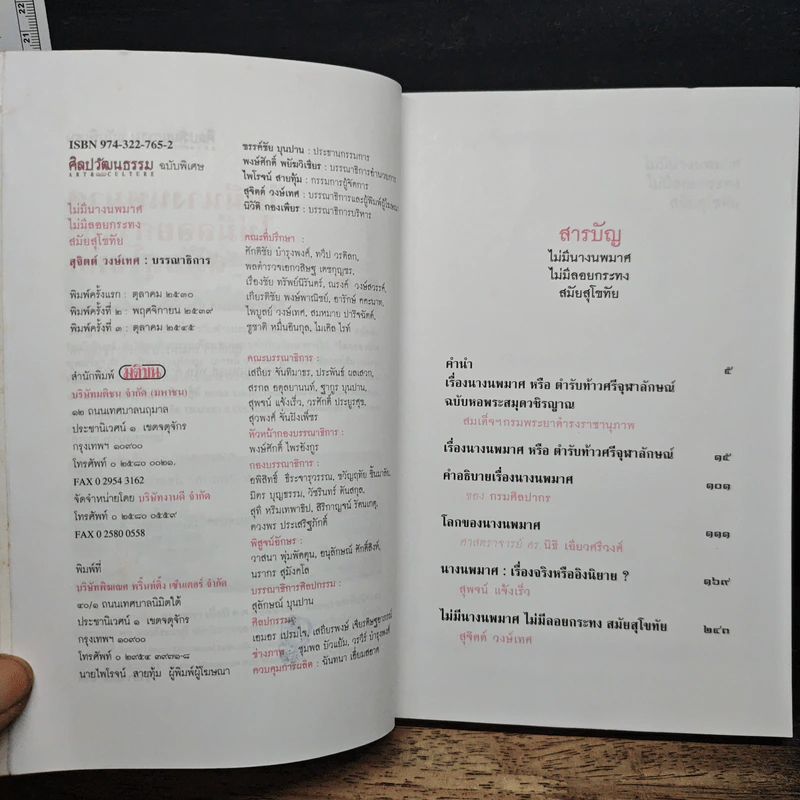 ISBN 974-322-765-2
ศิลปวัฒนธรรม ฉบับพิเศษ
ART & CULTURE
ไม่มีนางนพมาศ
ไม่มีลอยกระทง
สมัยสุโขทัย
สุจิตต์ วงษ์เทศ : บรรณาธิการ
พิมพ์ครั้งแรก : ตุลาคม ๒๕๓๐
พิมพ์ครั้งที่ ๒ : พฤศจิกายน ๒๕๓๙
พิมพ์ครั้งที่ ๓ : ตุลาคม ๒๕๔๕
สำนักพิมพ์ มติชน
บริษัทมติชน จำกัด (มหาชน)
๑๒ ถนนเทศบาลนฤมาล
ประชานิเวศน์ ๑ เขตจตุจักร
กรุงเทพฯ ๑๐๙๐๐
โทรศัพท์ ๐ ๒๕๘๐ ๐๐๒๑,
FAX 0 2954 3162
จัดจำหน่ายโดย บริษัทงานดี จำกัด
โทรศัพท์ ๐ ๒๕๘๐ ๐๕๕๙
FAX 0 2580 0558
พิมพ์ที่
บริษัทพิฆเณศ พริ้นท์ติ้ง เซ็นเตอร์ จำกัด
๔๐/๑ ถนนเทศบาลนิมิตใต้
ประชานิเวศน์ ๑ เขตจตุจักร
กรุงเทพฯ ๑๐๙๐๐
โทรศัพท์ ๐ ๒๙๕๔
นายไพโรจน์ สายทุ้ม ผู้พิมพ์ผู้โฆษณา
ขรรค์ชัย บุนปาน : ประธานกรรมการ
พงษ์ศักดิ์ พยัฆวิเชียร : บรรณาธิการอำนวยการ
ไพโรจน์ สายทุ้ม : กรรมการผู้จัดการ
สุจิตต์ วงษ์เทศ : บรรณาธิการและผู้พิมพ์ผู้โฆษณา
นิวัติ กองเพียร : บรรณาธิการบริหาร
คณะที่ปรึกษา :
ศักดิชัย บำรุงพงศ์, ทวีป วรดิลก,
พลตำรวจเอกวสิษฐ เดชกุญชร,
เรืองชัย ทรัพย์นิรันดร์, ณรงค์ วงษ์สวรรค์,
เกียรติชัย พงษ์พาณิชย์, อารักษ์ คคะนาท,
ไพบูลย์ วงษ์เทศ, สมหมาย ปาริจฉัตต์,
ชูชาติ หมื่นอินกุล, ไมเคิล ไรท์
คณะบรรณาธิการ :
เสถียร จันทิมาธร, ประพันธ์ ผลเสวก,
สรกล อดุลยานนท์, ฐากูร บุนปาน,
สุพจน์ แจ้งเร็ว, วรศักดิ์ ประยูรศุข,
สุวพงศ์ จั่นฝังเพ็ชร
หัวหน้ากองบรรณาธิการ :
พงษ์ศักดิ์ ไพรอังกูร
กองบรรณาธิการ :
อพิสิทธิ์ ธีระจารุวรรณ, ขวัญฤทัย
มิคร บุญธรรม, วัชรินทร์ คันสกุล,
สุที หริมเทพาธิป, สิริกาญจน์ รัตนเกตุ,
ดวงพร ประเสริฐภักดิ์
พิสูจน์อักษร :
วาสนา พุ่มพัดคุน, อนุลักษณ์ ศักดิ์สิงห์,
นรากร สุมังคโล
บรรณาธิการศิลปกรรม :
สุลักษณ์ บุนปาน
ศิลปกรรม :
เอมอร เปรมใจ, เสถียรพงษ์
ช่างภาพ : ชุมพล บัวแย้ม, วรวีร์ บำรุงพงศ์
ควบคุมการผลิต : ฉันทนา เอี่ยมสอาด
สารบัญ
ไม่มีนางนพมาศ
ไม่มีลอยกระทง
สมัยสุโขทัย
คำนำ ๕
เรื่องนางนพมาศ หรือ ตำรับท้าวศรีจุฬาลักษณ์
ฉบับหอพระสมุดวชิรญาณ
สมเด็จฯกรมพระยาดำรงราชานุภาพ
เรื่องนางนพมาศ หรือ ตำรับท้าวศรีจุฬาลักษณ์ ๑๕
คำอธิบายเรื่องนางนพมาศ ๑๐๑
ของ กรมศิลปากร
โลกของนางนพมาศ ๑๑๑
ศาสตราจารย์ ดร.นิธิ เอียวศรีวงศ์
นางนพมาศ : เรื่องจริงหรืออิงนิยาย ? ๑๖๙
สุพจน์ แจ้งเร็ว
ไม่มีนางนพมาศ ไม่มีลอยกระทง สมัยสุโขทัย ๒๔๓
สุจิตต์ วงษ์เทศ
21
22